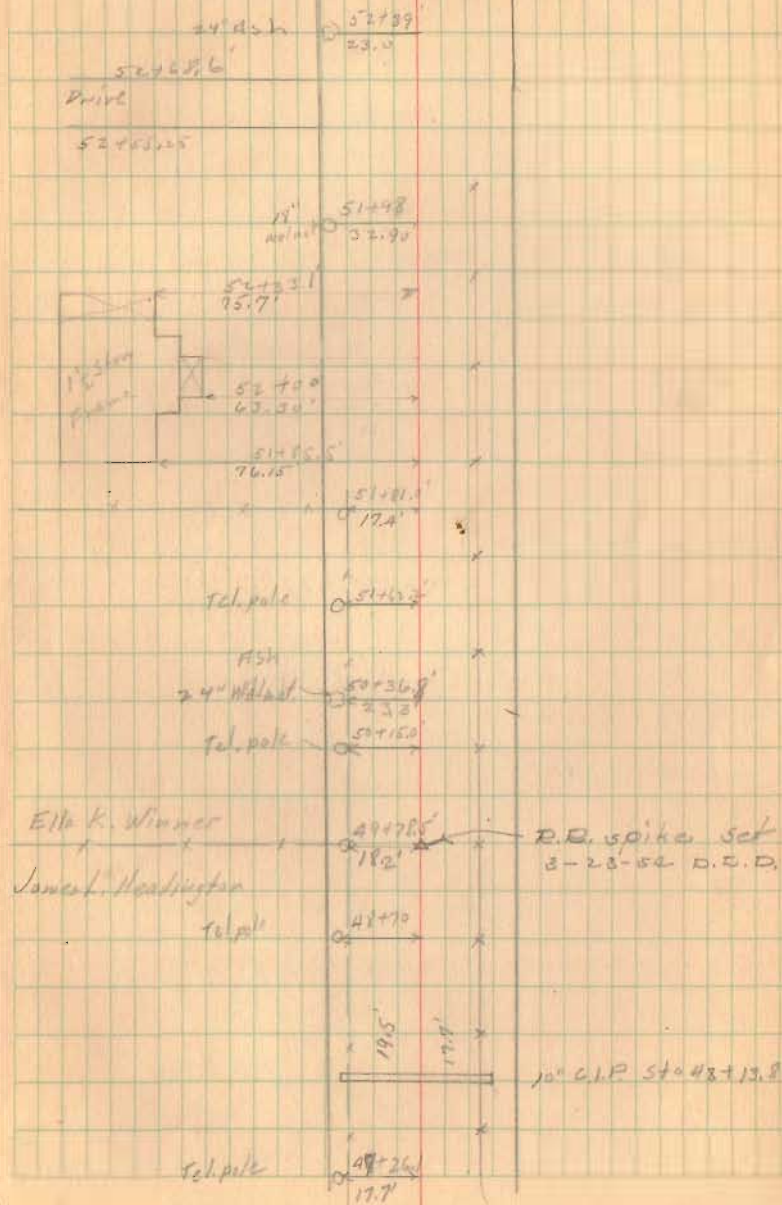 24" Ash
52+39'
23.0
52+68.6'
Drive
18"
walnut
51+48
32.90'
52+33.1'
75.7'
1½ Story
Frame
52+00
63.30'
51+85.5'
76.15'
17.4'
Tel. pole
Ash
24" Walnut
50+36.8'
Tel. pole
50+15.0'
Ella K. Winner
49+78.5'
18.2'
R.R. spike set
D.E.D.
James L. Headington
Tel pole
48+70
19.5'
17.7'
10" C.I.P. Sta 48+13.8
Tel. pole
47+26.1
17.7'